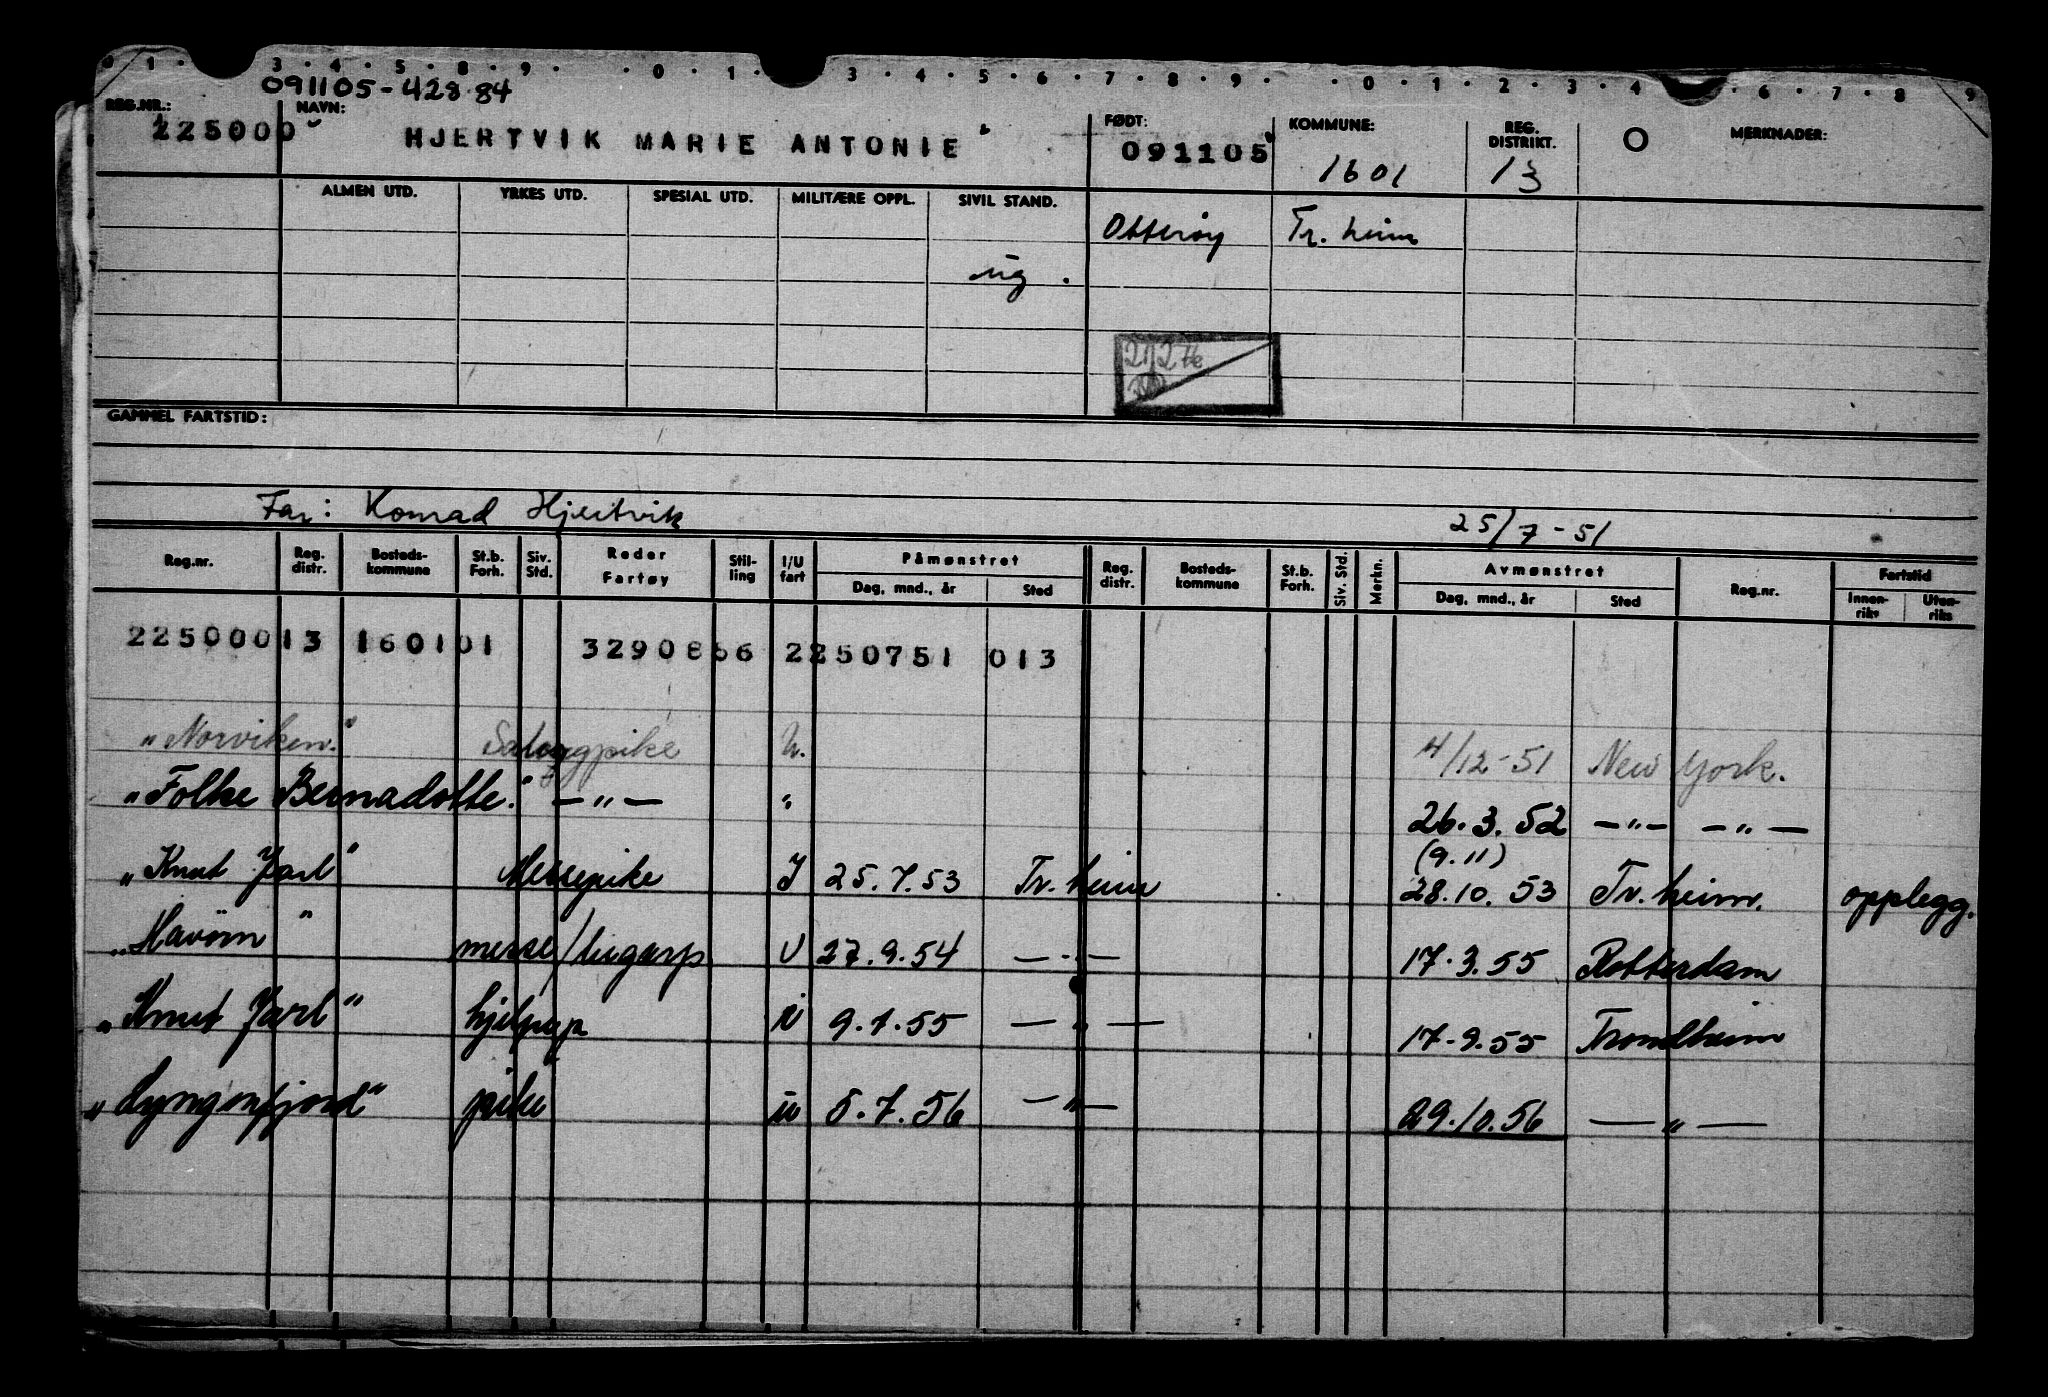 0 1 3 4 5 8 9 0 1 3 4 5 6 7 8 9 0 1 2 3 4 6 7 8 9
091105-428.84
REG.NR.: NAVN: FØDT: KOMMUNE: REG. DISTRIKT. O MERKNADER:
225000 HJERTVIK MARIE ANTONIE 091105 1601 13
ALMEN UTD. YRKES UTD. SPESIAL UTD. MILITÆRE OPPL. SIVIL STAND.
Otterøy Tr.heim
ug.
GAMMEL FARTSTID:
Far: Konrad Hjertvik 25/7-51
Reg.nr. Reg. distr. Bosteds-kommune St.b. Forh. Siv. Std. Reder Fartøy Stil-ling I/U fart Påmønstret Reg. distr. Bosteds-kommune St.b. Forh. Siv. Std. Merkn. Avmønstret Reg.nr. Fartstid
Dag, mnd., år Sted Dag, mnd., år Sted Innen-riks Uten-riks
22500013 160101 3290866 2250751 013
"Norviken" Salongpike U. 4/12-51 New York.
"Folke Bernadotte" —"— " 26.3.52 —"— —"—
(9.11)
"Knut Jarl" Messepike I 25.7.53 Tr.heim 28.10.53 Tr.heim. opplegg.
"Havörn" messe/lugarp U 27.9.54 —"— 17.3.55 Rotterdam
"Knut Jarl" i 9.7.55 —"— 17.9.55 Trondheim
"Lyngenfjord" pike u 5.7.56 —"— 29.10.56 —"—